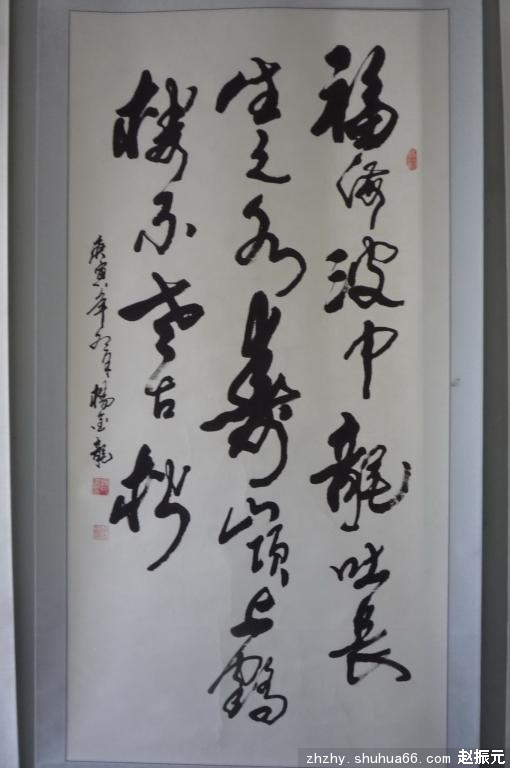 福海波中龍吐長
生之水壽嶺上鶴
棲不老古松
庚寅年冬月楊金龍
zhzhy.shuhua66.com 赵振元